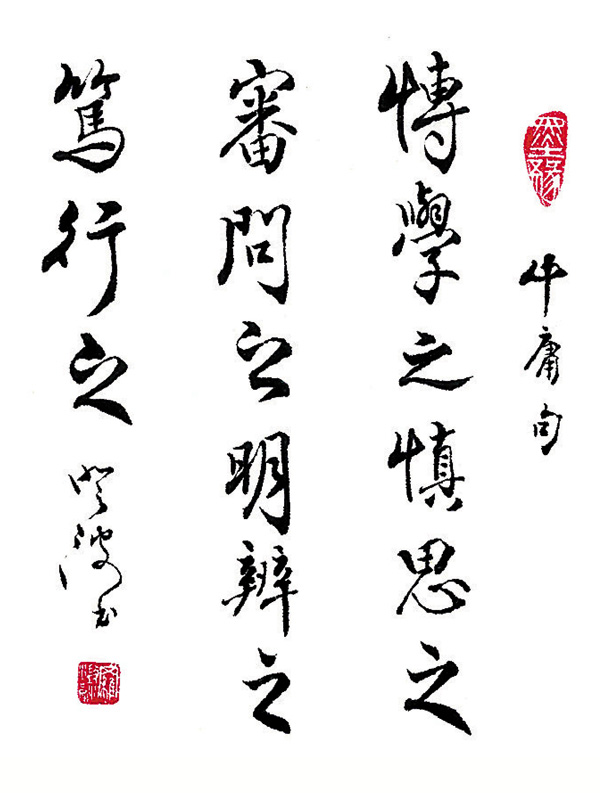 中庸句
博學之慎思之
審問之明辨之
篤行之
波书